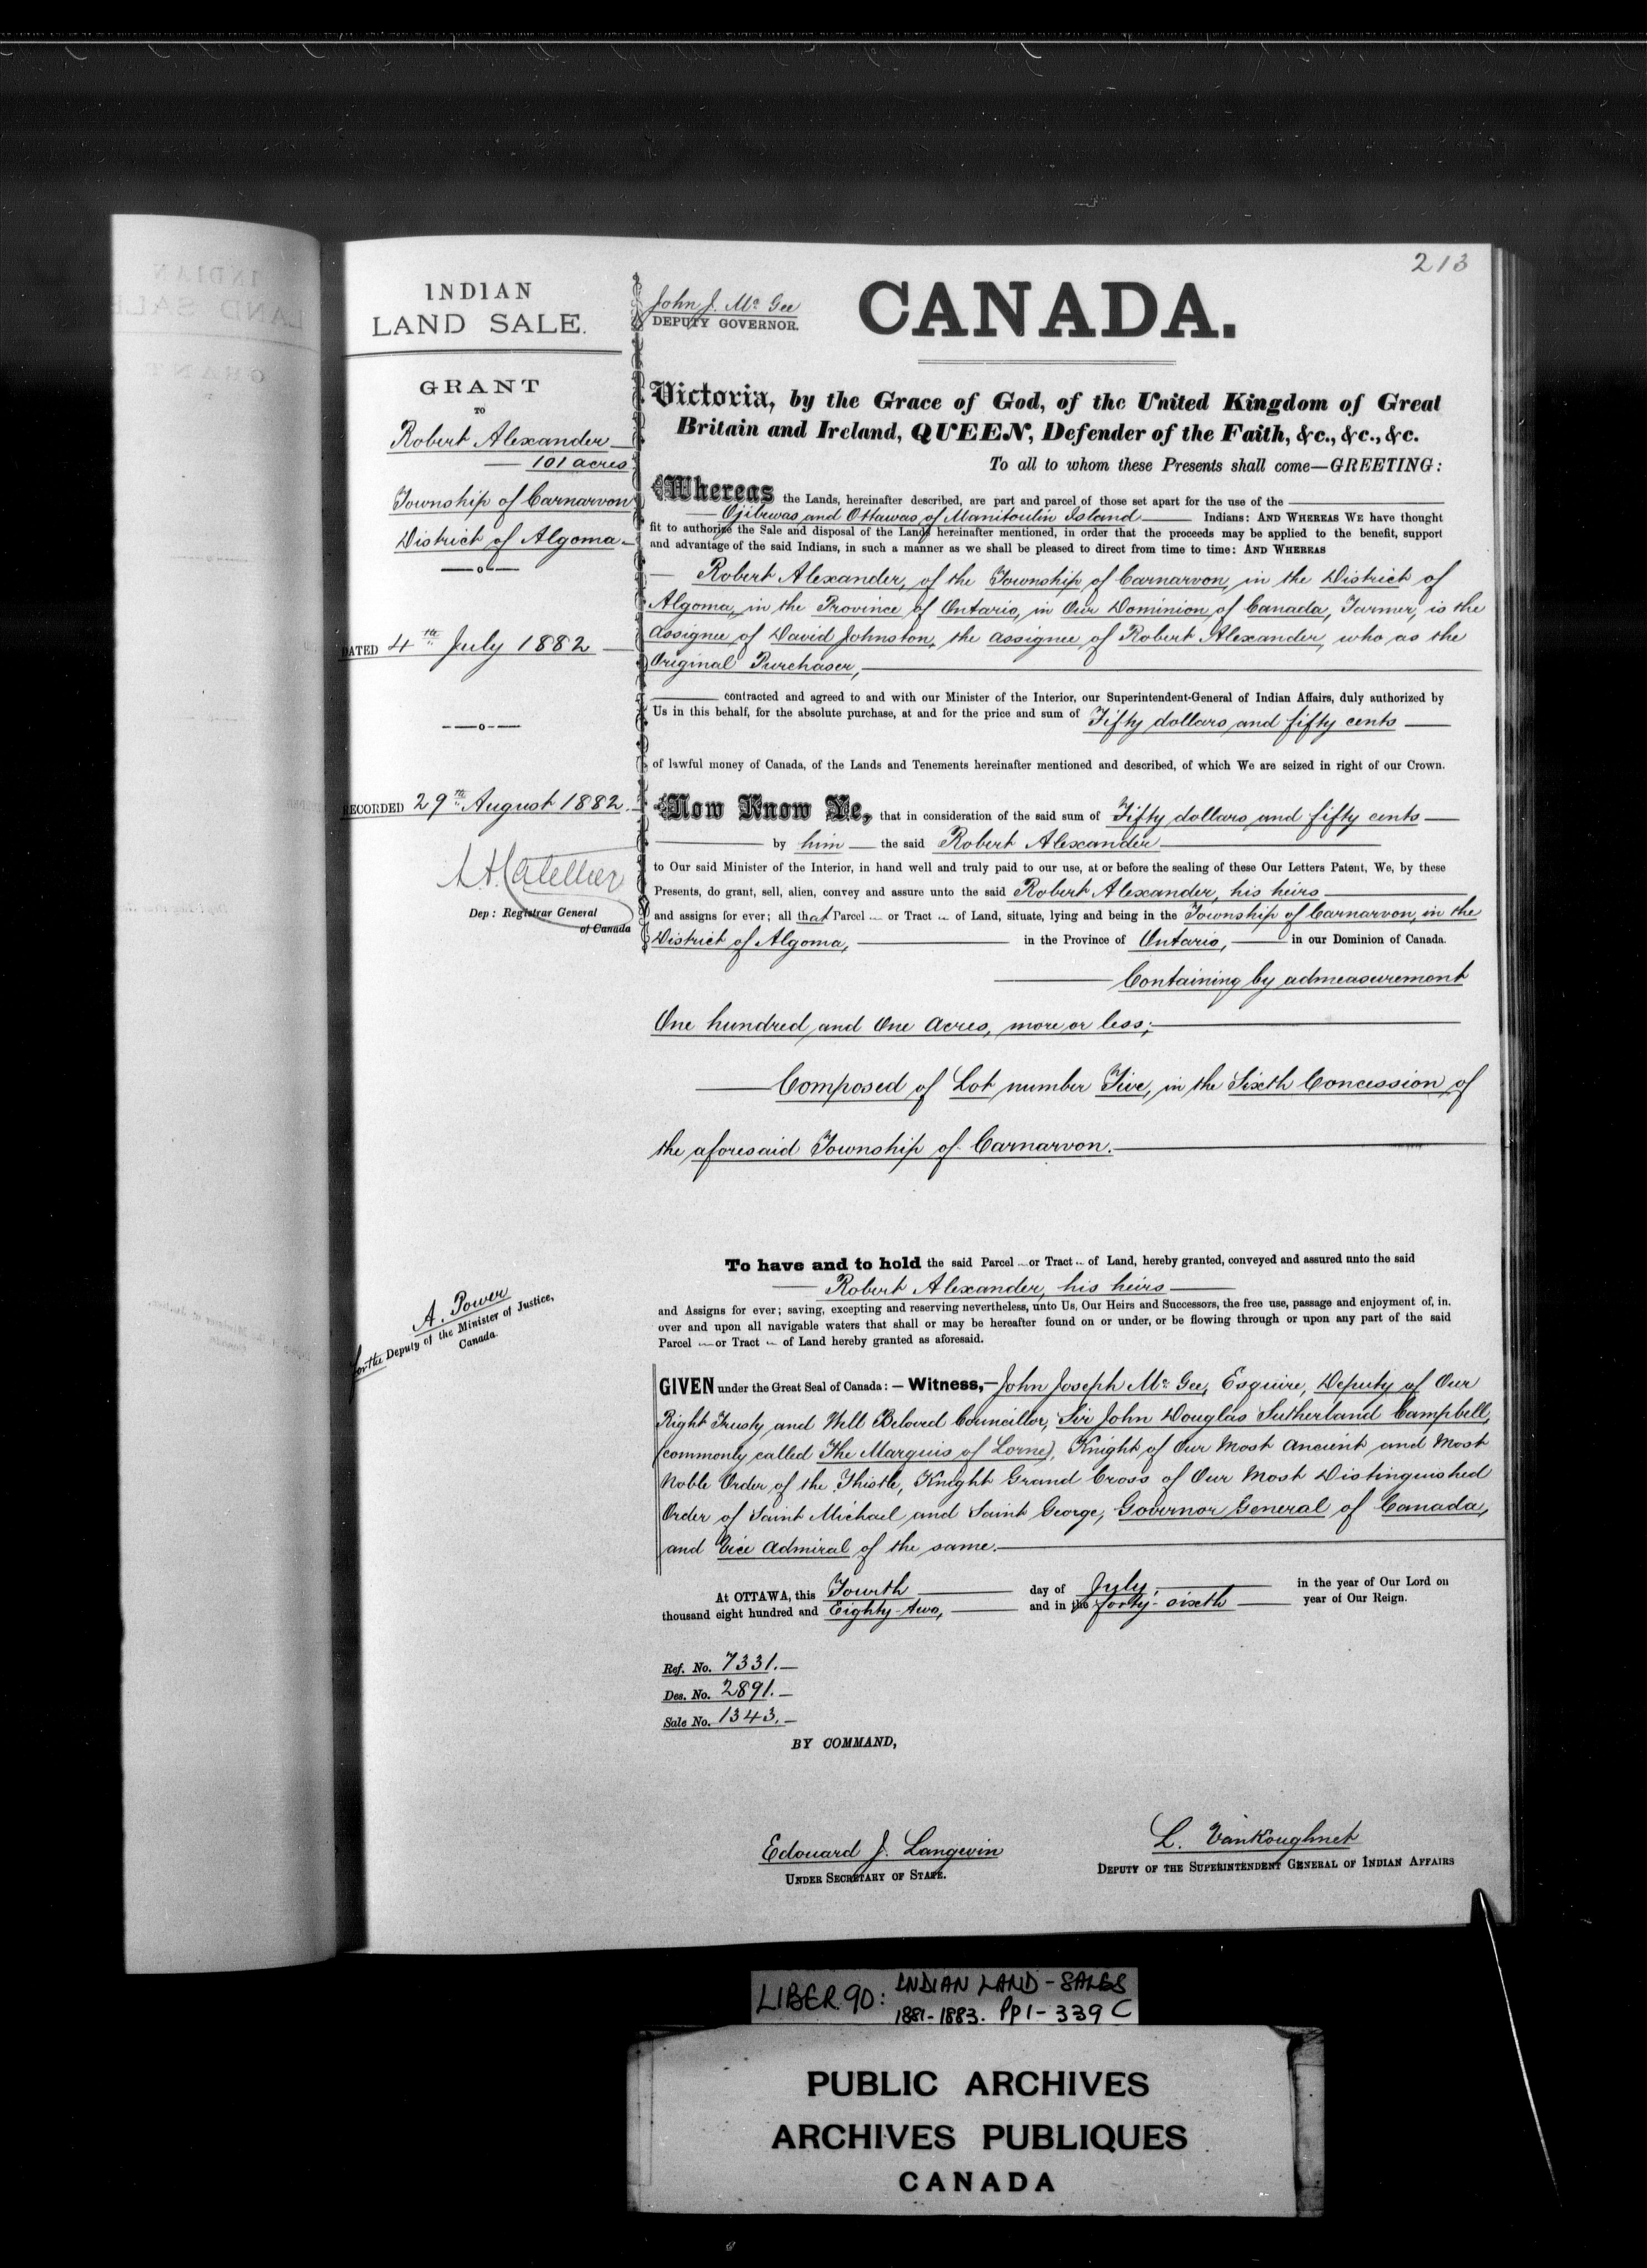 213
INDIAN
LAND SALE.
GRANT
TO
Robert Alexander
101 acres
Township of Carnarvon
District of Algoma
DATED 4th July 1882
RECORDED 29th August 1882.
Dep: Registrar General
of Canada
A. Power
for the Deputy of the Minister of Justice,
Canada.
John J. McGee
DEPUTY GOVERNOR.
CANADA.
Victoria, by the Grace of God, of the United Kingdom of Great
Britain and Ireland, QUEEN, Defender of the Faith, &c., &c., &c.
To all to whom these Presents shall come—GREETING:
Whereas the Lands, hereinafter described, are part and parcel of those set apart for the use of the
Ojibewas and Ottawas of Manitoulin Island Indians: AND WHEREAS WE have thought
fit to authorize the Sale and disposal of the Lands hereinafter mentioned, in order that the proceeds may be applied to the benefit, support
and advantage of the said Indians, in such a manner as we shall be pleased to direct from time to time: AND WHEREAS
Robert Alexander, of the Township of Carnarvon, in the District of
Algoma, in the Province of Ontario, in Our Dominion of Canada, Farmer, is the
assignee of David Johnston, the assignee of Robert Alexander, who as the
Original Purchaser,
contracted and agreed to and with our Minister of the Interior, our Superintendent-General of Indian Affairs, duly authorized by
Us in this behalf, for the absolute purchase, at and for the price and sum of Fifty dollars and fifty cents
of lawful money of Canada, of the Lands and Tenements hereinafter mentioned and described, of which We are seized in right of our Crown.
Now Know Ye, that in consideration of the said sum of Fifty dollars and fifty cents
by him the said Robert Alexander
to Our said Minister of the Interior, in hand well and truly paid to our use, at or before the sealing of these Our Letters Patent, We, by these
Presents, do grant, sell, alien, convey and assure unto the said Robert Alexander, his heirs
and assigns for ever; all that Parcel or Tract of Land, situate, lying and being in the Township of Carnarvon, in the
District of Algoma, in the Province of Ontario, in our Dominion of Canada.
Containing by admeasurement
One hundred and One acres, more or less;
Composed of Lot number Five, in the Sixth Concession of
the aforesaid Township of Carnarvon.
To have and to hold the said Parcel or Tract of Land, hereby granted, conveyed and assured unto the said
Robert Alexander, his heirs
and Assigns for ever; saving, excepting and reserving nevertheless, unto Us, Our Heirs and Successors, the free use, passage and enjoyment of, in,
over and upon all navigable waters that shall or may be hereafter found on or under, or be flowing through or upon any part of the said
Parcel or Tract of Land hereby granted as aforesaid.
GIVEN under the Great Seal of Canada:— Witness,— John Joseph McGee, Esquire, Deputy of Our
Right Trusty and Well Beloved Councillor, Sir John Douglas Sutherland Campbell,
(commonly called The Marquis of Lorne), Knight of Our Most Ancient and Most
Noble Order of the Thistle, Knight Grand Cross of Our Most Distinguished
Order of Saint Michael and Saint George, Governor General of Canada,
and Vice Admiral of the same.
At OTTAWA, this Fourth day of July, in the year of Our Lord on
thousand eight hundred and Eighty-two, and in the forty-sixth year of Our Reign.
Ref. No. 7331.
Des. No. 2891.
Sale No. 1343.
BY COMMAND,
Edouard J. Langevin
UNDER SECRETARY OF STATE.
L. VanKoughnet
DEPUTY OF THE SUPERINTENDENT GENERAL OF INDIAN AFFAIRS
LIBER. 90: INDIAN LAND-SALES
1881-1883. Pp 1-339 C
PUBLIC ARCHIVES
ARCHIVES PUBLIQUES
CANADA